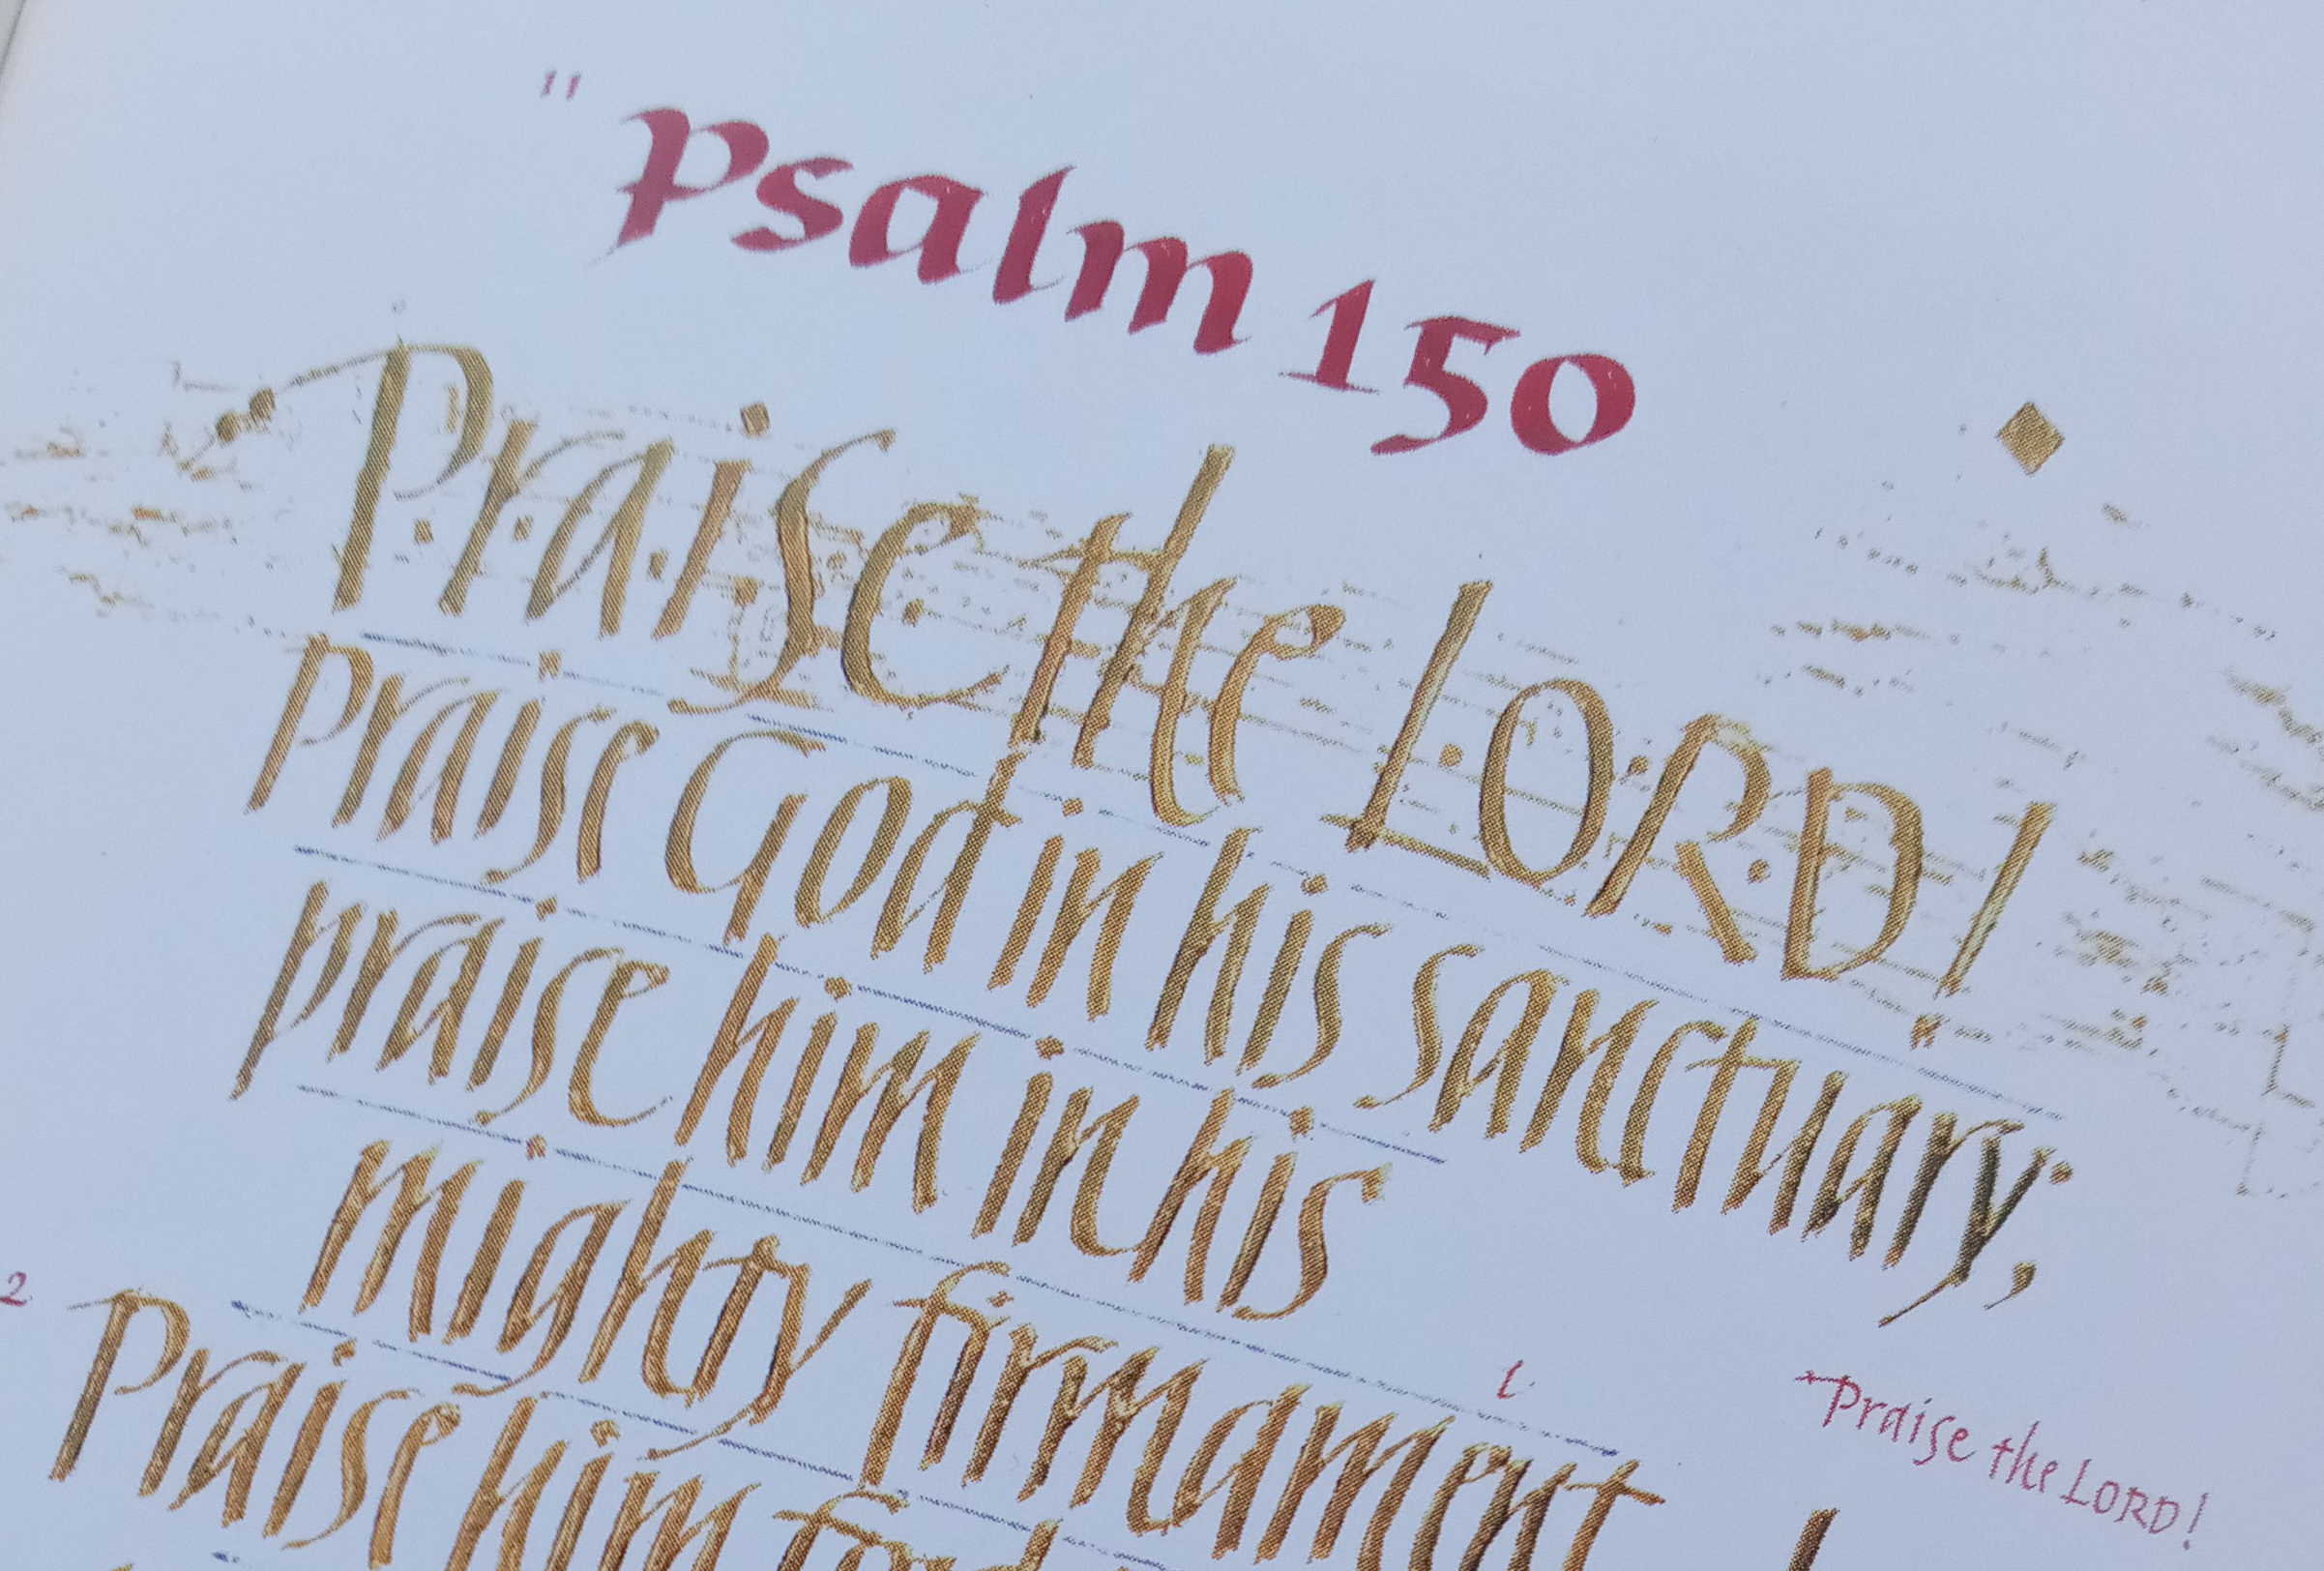 " Psalm 150
Praise the LORD!
Praise God in his sanctuary;
praise him in his
mighty firmament
l
Praise the LORD!
2 Praise him for